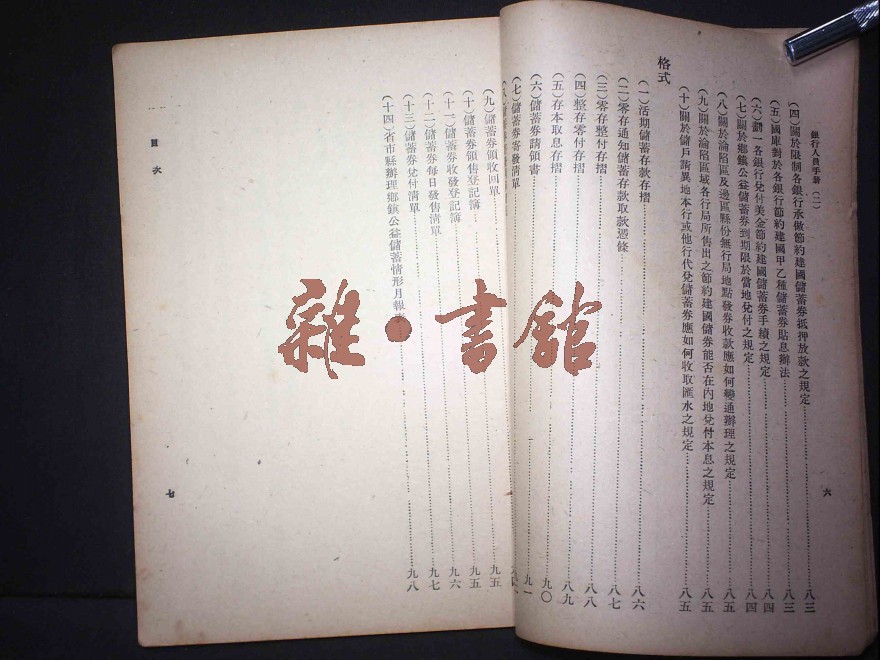 銀行人員手冊（二）
六
（四）關於限制各銀行承做節約建國儲蓄券抵押放款之規定……八三
（五）國庫對於各銀行節約建國甲乙種儲蓄券貼息辦法……八三
（六）劃一各銀行兌付美金節約建國儲蓄券手續之規定……八四
（七）關於鄉鎮公益儲蓄券到期限於當地兌付之規定……八四
（八）關於淪陷區及邊區縣份無行局地點發券收款應如何變通辦理之規定……八五
（九）關於淪陷區域各行局所售出之節約建國儲券能否在內地兌付本息之規定……八五
（十）關於儲戶請異地本行或他行代兌儲蓄券應如何收取匯水之規定……八五
格式
（一）活期儲蓄存款存摺……八六
（二）零存通知儲蓄存款取款憑條……八七
（三）零存整付存摺……八八
（四）整存零付存摺……八八
（五）存本取息存摺……八九
（六）儲蓄券請領書……九〇
（七）儲蓄券寄發清單……九一
（九）儲蓄券領收回單……九五
（十）儲蓄券領售登記簿……九五
（十一）儲蓄券收發登記簿……九六
（十二）儲蓄券每日發售清單……九七
（十三）儲蓄券兌付清單……九八
（十四）省市縣辦理鄉鎮公益儲蓄情形月報
目次
七
雜·書館